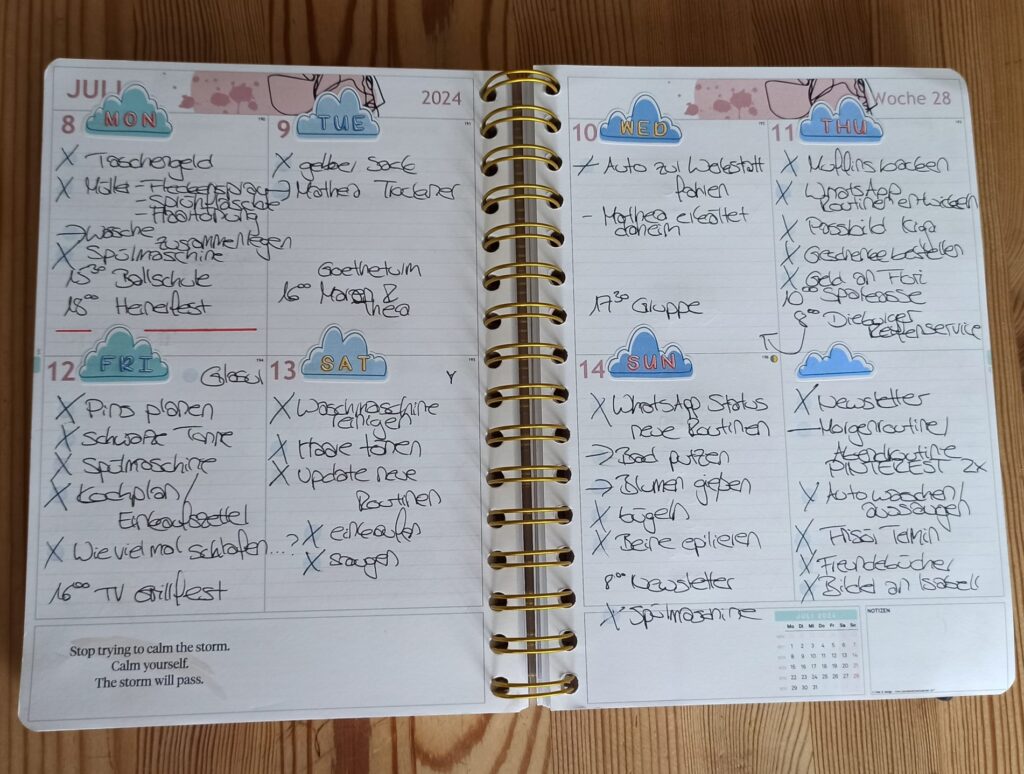 JULI
2024
8
MON
X Taschengeld
X Müller - Fleckenspray
- Sprühflasche
- Haartönung
→ Wäsche
zusammenlegen
X Spülmaschine
15³⁰ Ballschule
18⁰⁰ Heinerfest
9
TUE
X gelber Sack
→ Mathea Trockener
Goetheturm
16⁰⁰ Maren &
Thea
12
FRI
Glasul
X Pins planen
X Schwarze Tonne
X Spülmaschine
X Kochplan/
Einkaufszettel
X Wie viel mal schlafen...?
16⁰⁰ TV Grillfest
13
SAT
Y
X Waschmaschine
reinigen
X Haare tönen
X Update neue
Routinen
X einkaufen
X saugen
Stop trying to calm the storm.
Calm yourself.
The storm will pass.
Woche 28
10
WED
Auto zur Werkstatt
fahren
- Mathea erkältet
daheim
17³⁰ Gruppe
11
THU
X Muffins backen
X WhatsApp
Routinen entwickeln
X Passbild Kiga
X Geschenke bestellen
X Geld an Flori
10⁰⁰ Sparkasse
8⁰⁰ Dieburger
Reifenservice
14
SUN
X WhatsApp Status
neue Routinen
→ Bad putzen
→ Blumen gießen
X bügeln
X Beine epilieren
8⁰⁰ Newsletter
X Spülmaschine
X Newsletter
- Morgenroutine/
Abendroutine
PINTEREST 2x
X Auto waschen/
aussaugen
X Frisör Termin
X Freundebücher
X Bilder an Isabell
JULI 2024
Mo Di Mi Do Fr Sa So
1 2 3 4 5 6 7
8 9 10 11 12 13 14
15 16 17 18 19 20 21
22 23 24 25 26 27 28
29 30 31
NOTIZEN